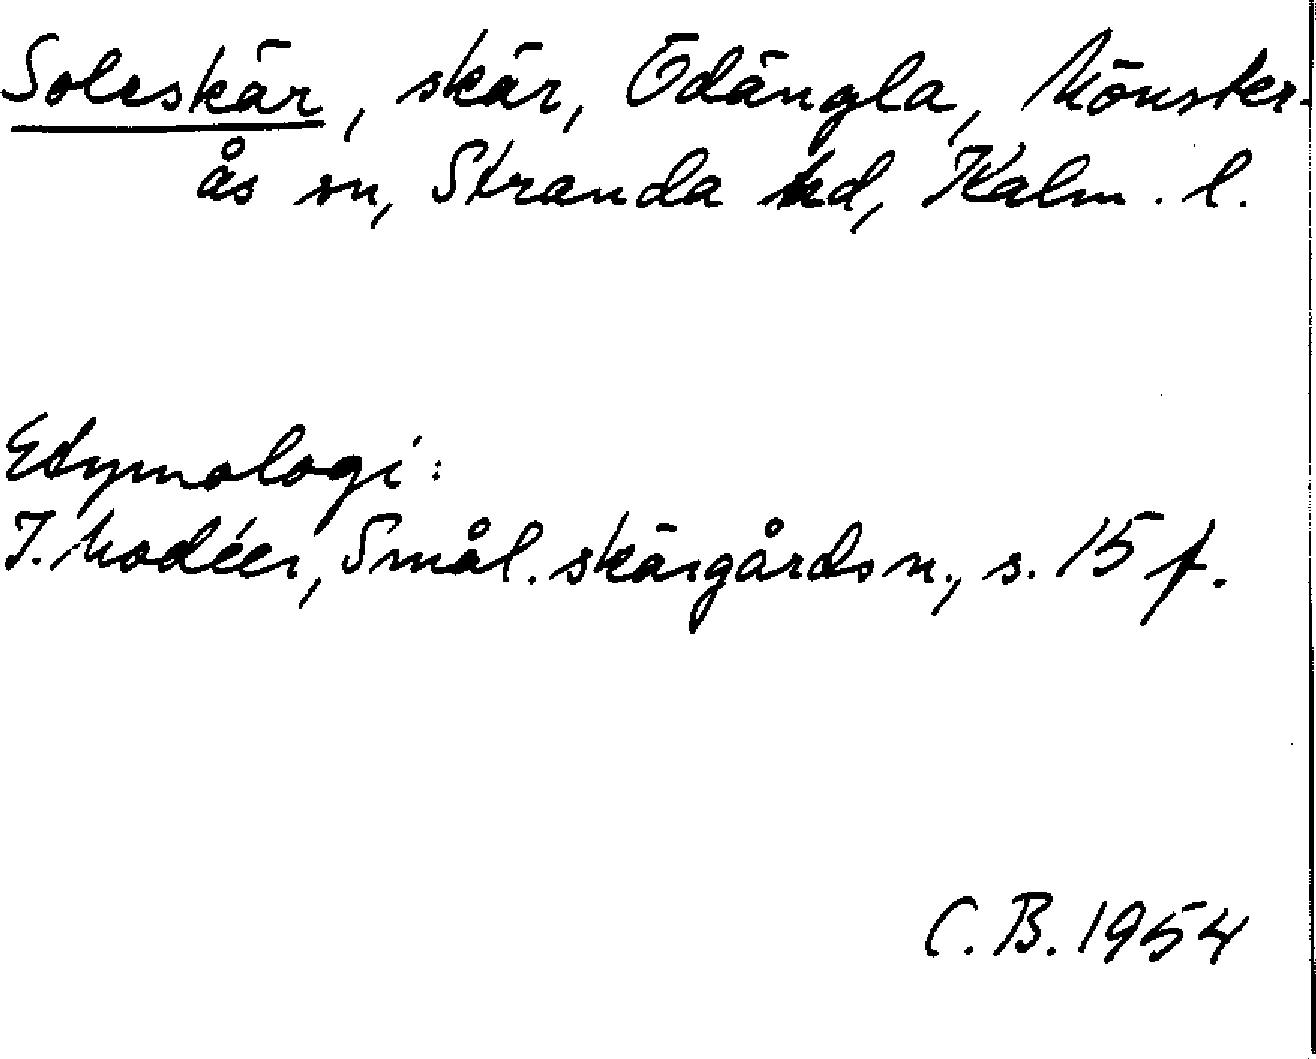 Soleskär, skär, Ödängla, Mönster-
ås sn, Stranda hd, Kalm. l.
Etymologi:
I. Modéer, Smål. skärgårdsn., s. 15 f.
C. B. 1954